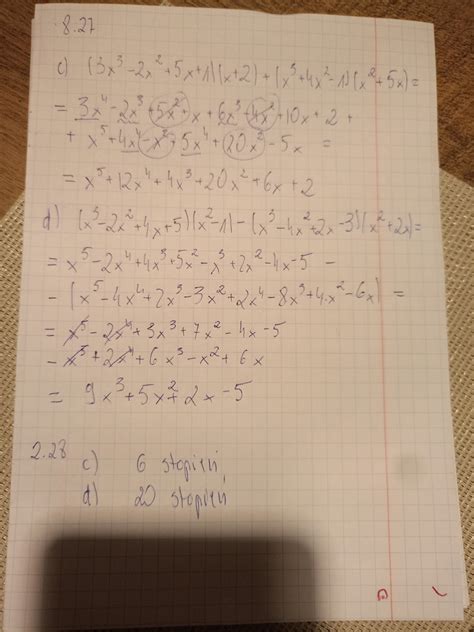 8.27
c) (3x³-2x²+5x+1)(x+2)+(x³+4x²-1)(x²+5x)=
= 3x⁴-2x³+5x²+x+6x³-4x²+10x+2+
+ x⁵+4x⁴-x²+5x⁴+20x³-5x =
= x⁵+12x⁴+4x³+20x²+6x+2
d) (x³-2x²+4x+5)(x²-1)-(x³-4x²+2x-3)(x²+2x)=
= x⁵-2x⁴+4x³+5x²-x³+2x²-4x-5 -
- (x⁵-4x⁴+2x³-3x²+2x⁴-8x³+4x²-6x) =
= x⁵-2x⁴+3x³+7x²-4x-5
- x⁵+2x⁴+6x³-x²+6x
= 9x³+5x²+2x-5
2.28 c) 6 stopień
d) 20 stopień